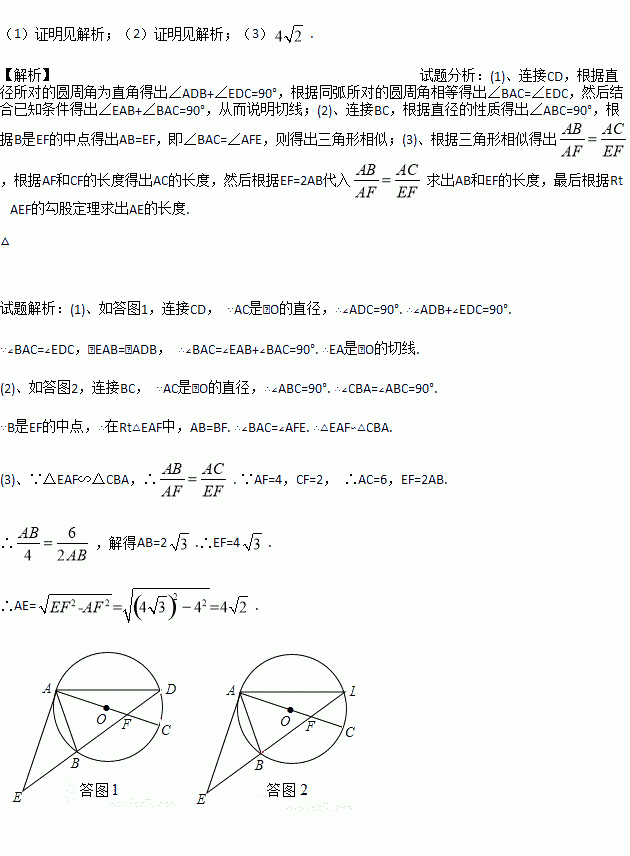 （1）证明见解析；（2）证明见解析；（3）4√2．
【解析】 试题分析：(1)、连接CD，根据直
径所对的圆周角为直角得出∠ADB+∠EDC=90°，根据同弧所对的圆周角相等得出∠BAC=∠EDC，然后结
合已知条件得出∠EAB+∠BAC=90°，从而说明切线；(2)、连接BC，根据直径的性质得出∠ABC=90°，根
据B是EF的中点得出AB=EF，即∠BAC=∠AFE，则得出三角形相似；(3)、根据三角形相似得出AB/AF=AC/EF
，根据AF和CF的长度得出AC的长度，然后根据EF=2AB代入AB/AF=AC/EF 求出AB和EF的长度，最后根据Rt
AEF的勾股定理求出AE的长度.
△
试题解析：(1)、如答图1，连接CD， ∵AC是⊙O的直径，∴∠ADC=90°. ∴∠ADB+∠EDC=90°.
∵∠BAC=∠EDC，∠EAB=∠ADB， ∴∠BAC=∠EAB+∠BAC=90°. ∴EA是⊙O的切线.
(2)、如答图2，连接BC， ∵AC是⊙O的直径，∴∠ABC=90°. ∴∠CBA=∠ABC=90°.
∵B是EF的中点，∴在Rt△EAF中，AB=BF. ∴∠BAC=∠AFE. ∴△EAF∽△CBA.
(3)、∵△EAF∽△CBA，∴AB/AF=AC/EF．∵AF=4，CF=2， ∴AC=6，EF=2AB.
∴AB/4=6/2AB ，解得AB=2√3 .∴EF=4√3．
∴AE=√(EF²-AF²)=√((4√3)²−4²)=4√2．
A D
O F C
B
E
答图1
A I
O F C
B
E
答图2